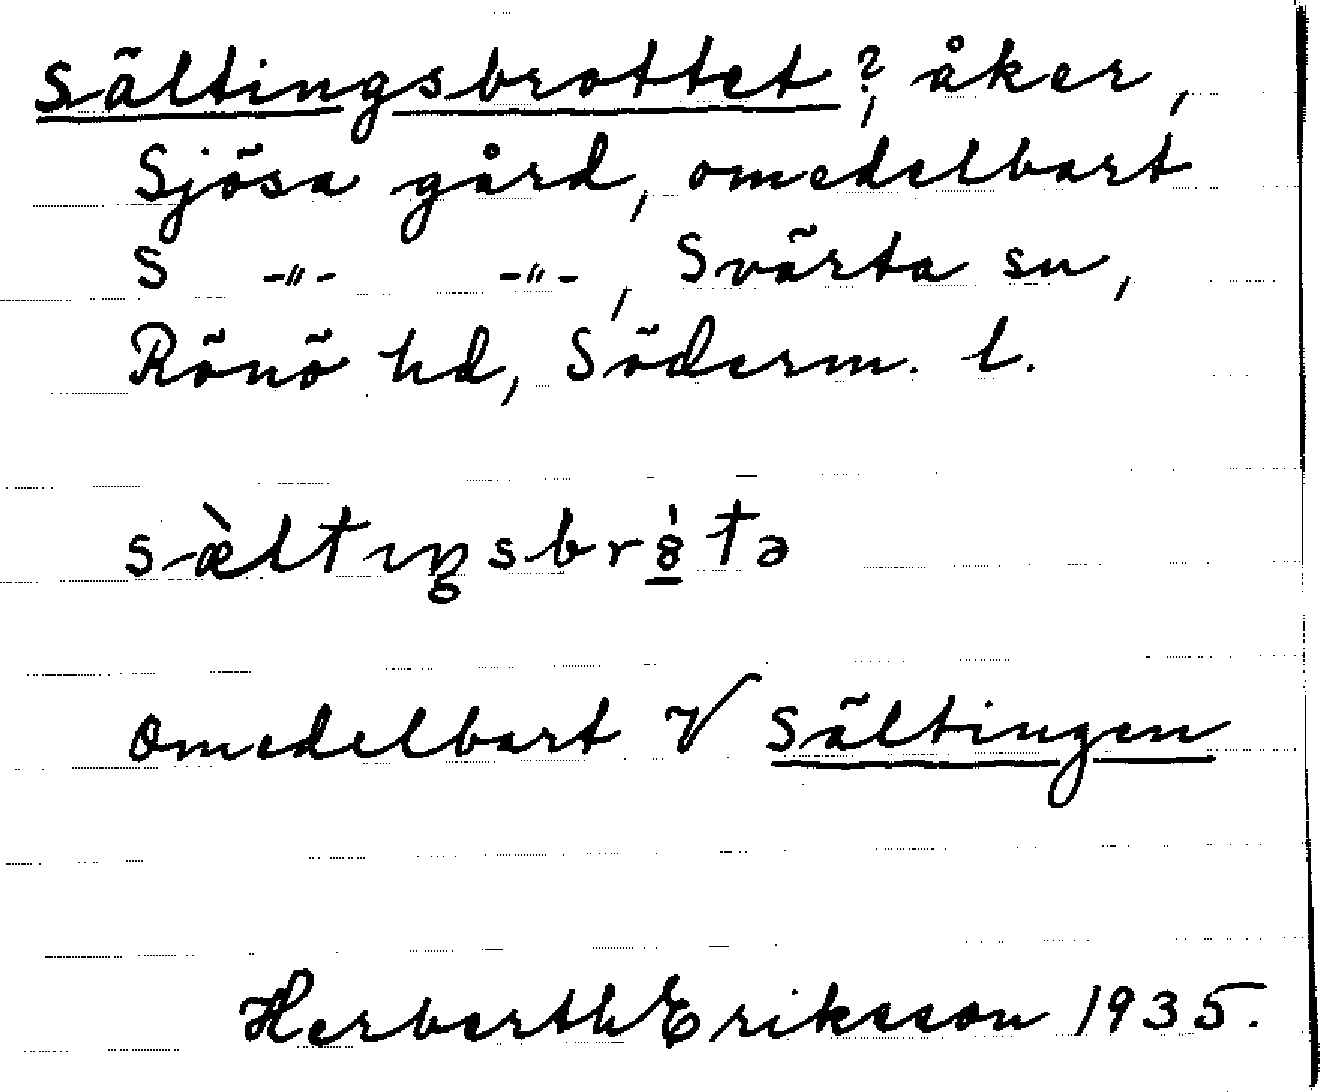 Sältingsbrottet?, åker,
Sjösa gård, omedelbart
S -"- -"-, Svärta sn,
Rönö hd, Söderm. l.
sæ̀ltıŋsbrȯ̱tə
Omedelbart V Sältingen
Herberth Eriksson 1935.